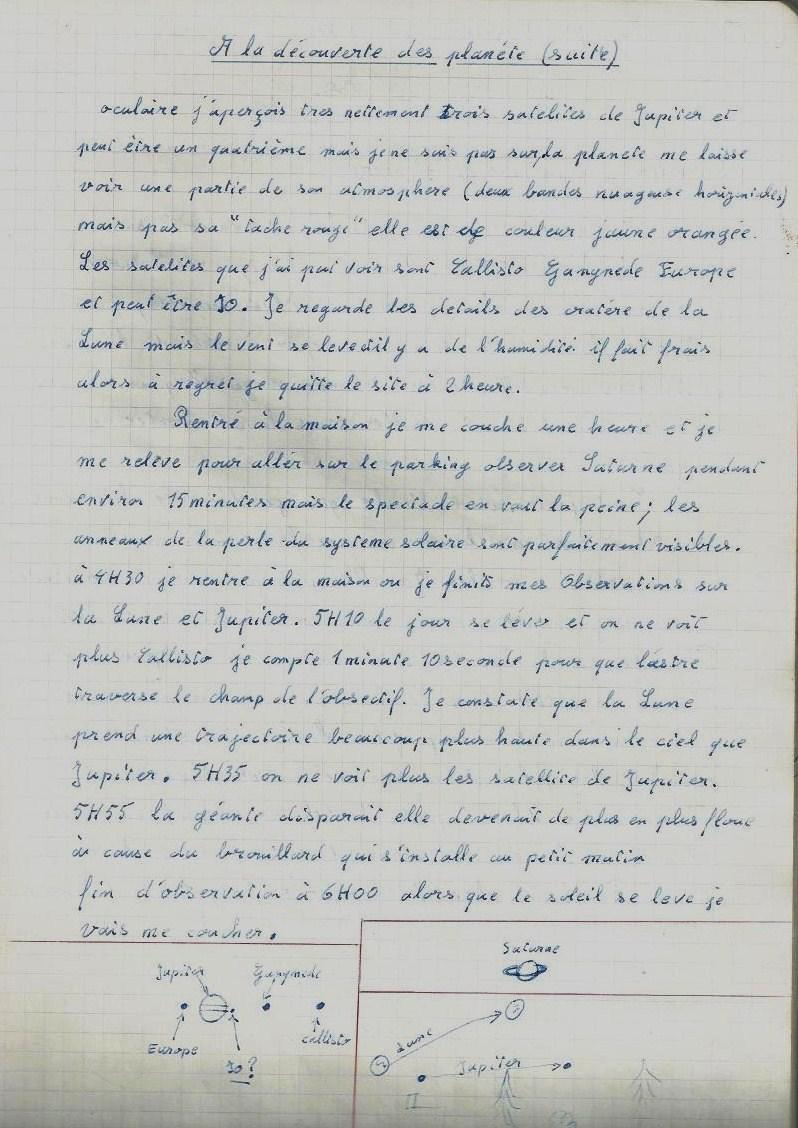 A la découverte des planéte (suite)
oculaire j'aperçois tres nettement trois satelites de Jupiter et
peut être un quatrième mais je ne suis pas sur, la planete me laisse
voir une partie de son atmosphère (deux bandes nuageuse horizontales)
mais pas sa "tache rouge" elle est de couleur jaune orangée.
Les satelites que j'ai put voir sont Callisto Ganymède Europe
et peut être IO. Je regarde les details des cratére de la
Lune mais le vent se leve et il y a de l'humidité il fait frais
alors à regret je quitte le site à 2 heure.
Rentré à la maison je me couche une heure et je
me relève pour allér sur le parking observer Saturne pendant
environ 15 minutes mais le spectacle en vaut la peine; les
anneaux de la perle du système solaire sont parfaitement visibles.
à 4H30 je rentre à la maison ou je finits mes Observations sur
la Lune et Jupiter. 5H10 le jour se léve et on ne voit
plus Callisto je compte 1 minute 10 seconde pour que l'astre
traverse le champ de l'obsectif. Je constate que la Lune
prend une trajectoire beaucoup plus haute dans le ciel que
Jupiter. 5H35 on ne voit plus les satellite de Jupiter.
5H55 la géante disparait elle devenait de plus en plus floue
à cause du brouillard qui s'installe au petit matin
fin d'observation à 6H00 alors que le soleil se leve je
vais me coucher.
Saturne
Jupiter Ganymede
Europe
IO?
Callisto
Lune
Jupiter